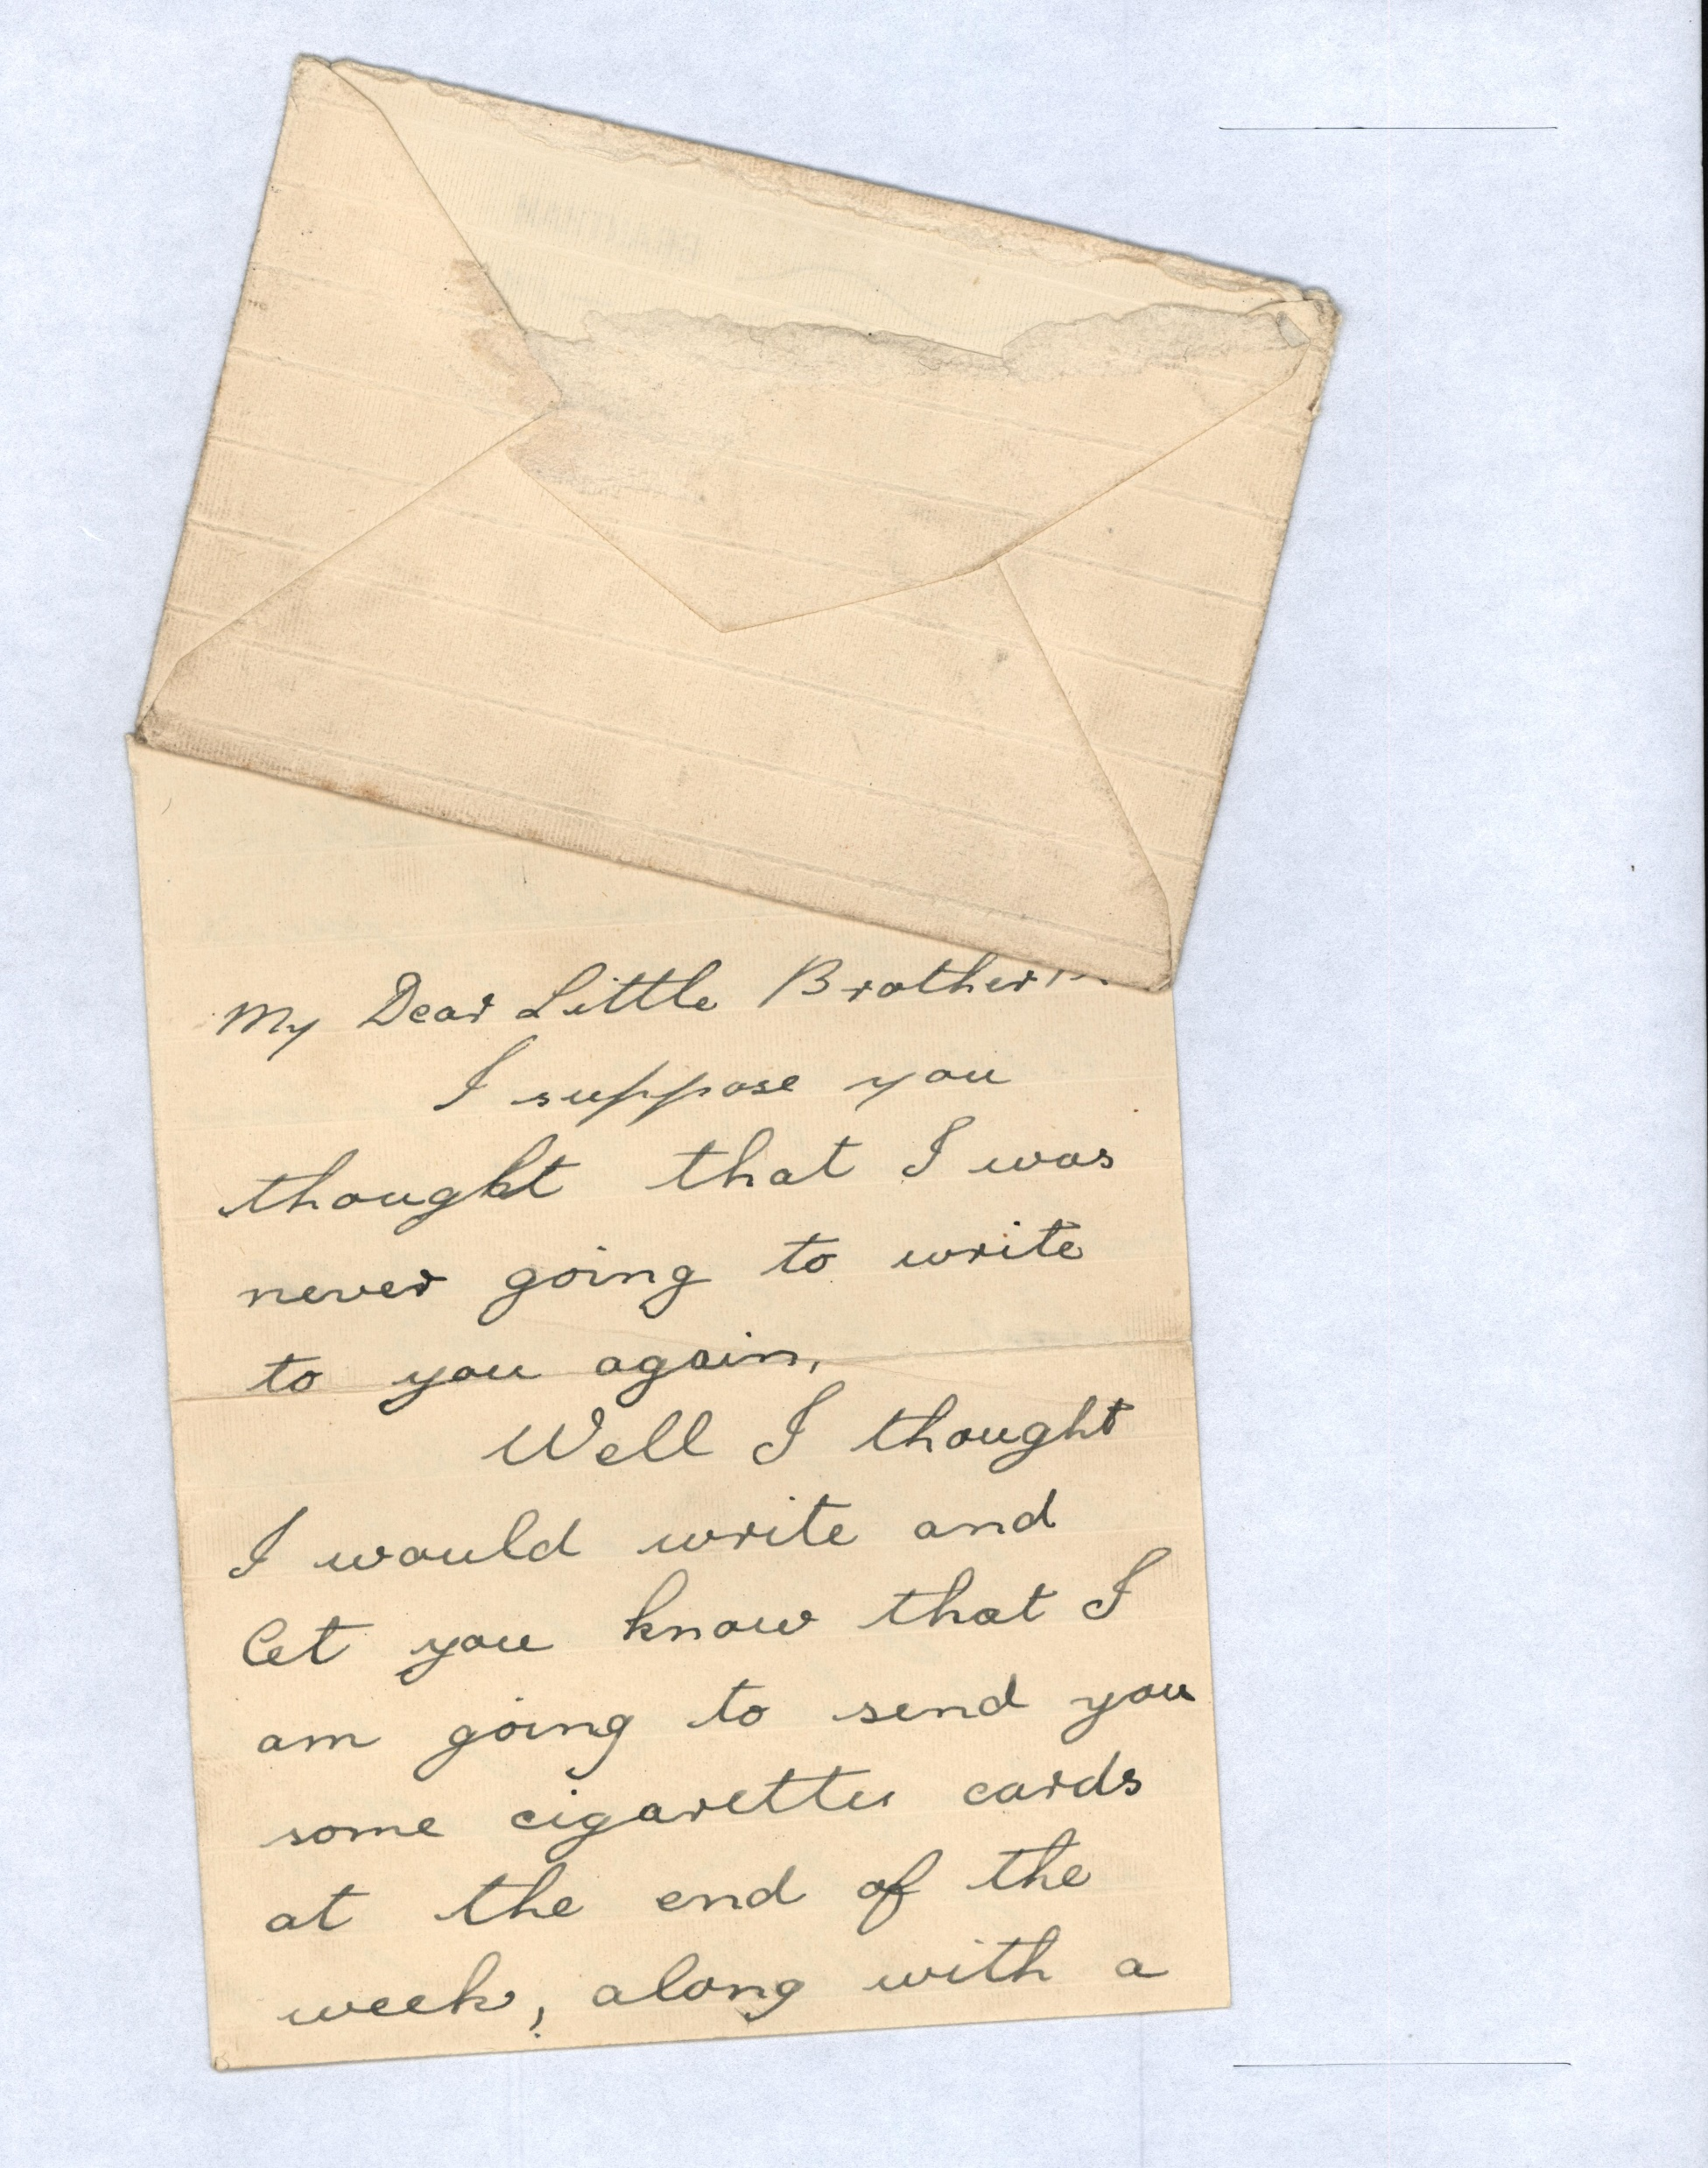 My Dear Little Brother
I suppose you
thought that I was
never going to write
to you again,
Well I thought
I would write and
let you know that I
am going to send you
some cigarettes cards
at the end of the
week, along with a